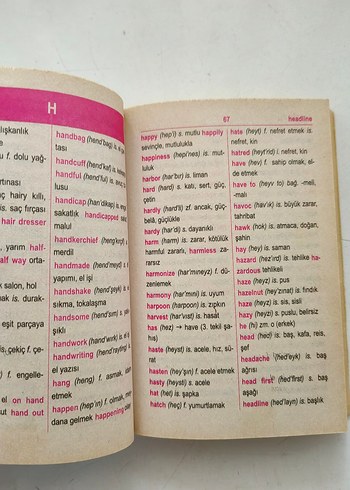 H
lışkanlık
f. dolu yağ-
ç hairy kıllı,
is. saç fırçası
hair dresser
yarım half-
half way orta-
salon, hol
is. durak-
eşit parçaya
is. çekiç f. çe-
f. engelle-
el on hand
out hand out
handbag (hend'bag) is. el çan-
tası
handcuff (hend'kaf) is. kelepçe
handful (hend'ful) is. avuç do-
lusu
handicap (han'dikap) is. engel,
sakatlık handicapped sakat,
malul
handkerchief (heng'kırçif) is.
merdil
handmade (hend'meyd) s. el
yapımı, el işi
handshake (hend'şeyk) is. el
sıkma, tokalaşma
handsome (hend'sım) s. yakı-
şıklı
handwork (hand'wırk) is. el işi
handwriting (hend'rayting) is.
el yazısı
hang (heng) f. asmak, idam
etmek
happen (hep'ın) f. olmak, mey-
dana gelmek happening olay
67
headline
happy (hep'i) s. mutlu happily
sevinçle, mutlulukla
happiness (hep'ines) is. mut-
luluk
harbor (har'bır) is. liman
hard (hard) s. katı, sert, güç,
çetin
hardly (hard'li) zf. ancak, güç-
belâ, güçlükle
hardy (har'di) s. dayanıklı
harm (harm) is. zarar, kötülük
harmful zararlı, harmless za-
rarsız
harmonize (har'mıneyz) f. dü-
zenlemek
harmony (har'mını) is. uyum
harpoon (harpun') is. zıpkın
harvest (har'vıst) is. hasat
has (hez) → have (3. tekil şa-
hıs)
haste (heyst) is. acele, hız, sü-
rat
hasten (hey'sın) f. acele etmek
hasty (heysti) s. acele
hat (het) is. şapka
hatch (heç) f. yumurtlamak
hate (heyt) f. nefret etmek is.
nefret, kin
hatred (heyt'rid) i. nefret, kin
have (hev) f. sahip olmak, el-
de etmek
have to (heyv to) bağ. -meli,
-malı
havoc (hav'ık) is. büyük zarar,
tahribat
hawk (hok) is. atmaca, doğan,
şahin
hay (hey) is. saman
hazard (hez'ırd) is. tehlike ha-
zardous tehlikeli
haze (heyz) is. pus
hazelnut (hey'zınat) is. fındık
he (hi) zm. o (erkek)
hazy (heyzi) s. puslu, belirsiz
head (hed) is. baş, kafa, reis,
şef
headache (hed'eyk) is. baş
ağrısı
head first (hed'först) s. baş
aşağı
headline (hed'layn) is. başlık